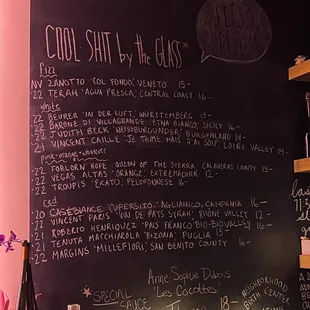 COOL SHIT by the GLASS*
fizz
NV ZANOTTO 'COL FONDO', VENETO 15-
'22 TERAH 'AGUA FRESCA', CENTRAL COAST 16-
white
'22 BEURER 'IN DER LUFT', WÜRTEMBERG 15-
'22 BARONE DI VILLAGRANDE 'ETNA BIANCO', SICILY 16-
'22 JUDITH BECK 'WEISSBURGUNDER' BURGENLAND 14-
'21 VINCENT CAILLÉ 'JE T'AIME MAIS J'AI SOIF', LOIRE VALLEY 14-
pink-orange-whatever
'22 FORLORN HOPE 'QUEEN OF THE SIERRA', CALAVERAS COUNTY 15-
'22 VEGAS ALTAS 'ORANGE', EXTREMADURA 12-
'22 TROUPIS 'EKATO', PELOPONNESE 16-
red
'20 CASEBIANCHE 'CUPERSITO', AGLIANICO, CAMPANIA 16-
'22 VINCENT PARIS 'VIN DE PAYS SYRAH', RHÔNE VALLEY 12-
'21 ROBERTO HENRIQUEZ 'PAIS FRANCO' BIO-BIO VALLEY 16-
'21 TENUTA MACCHIAROLA 'BIZONA', PUGLIA 15-
'22 MARGINS 'MILLEFIORI', SAN BENITO COUNTY 16-
Anne Sophie Dubois
'Les Cocottes'
*SPECIAL
SAUCE
18-
NEIGHBORHOOD
BIRTH CENTER